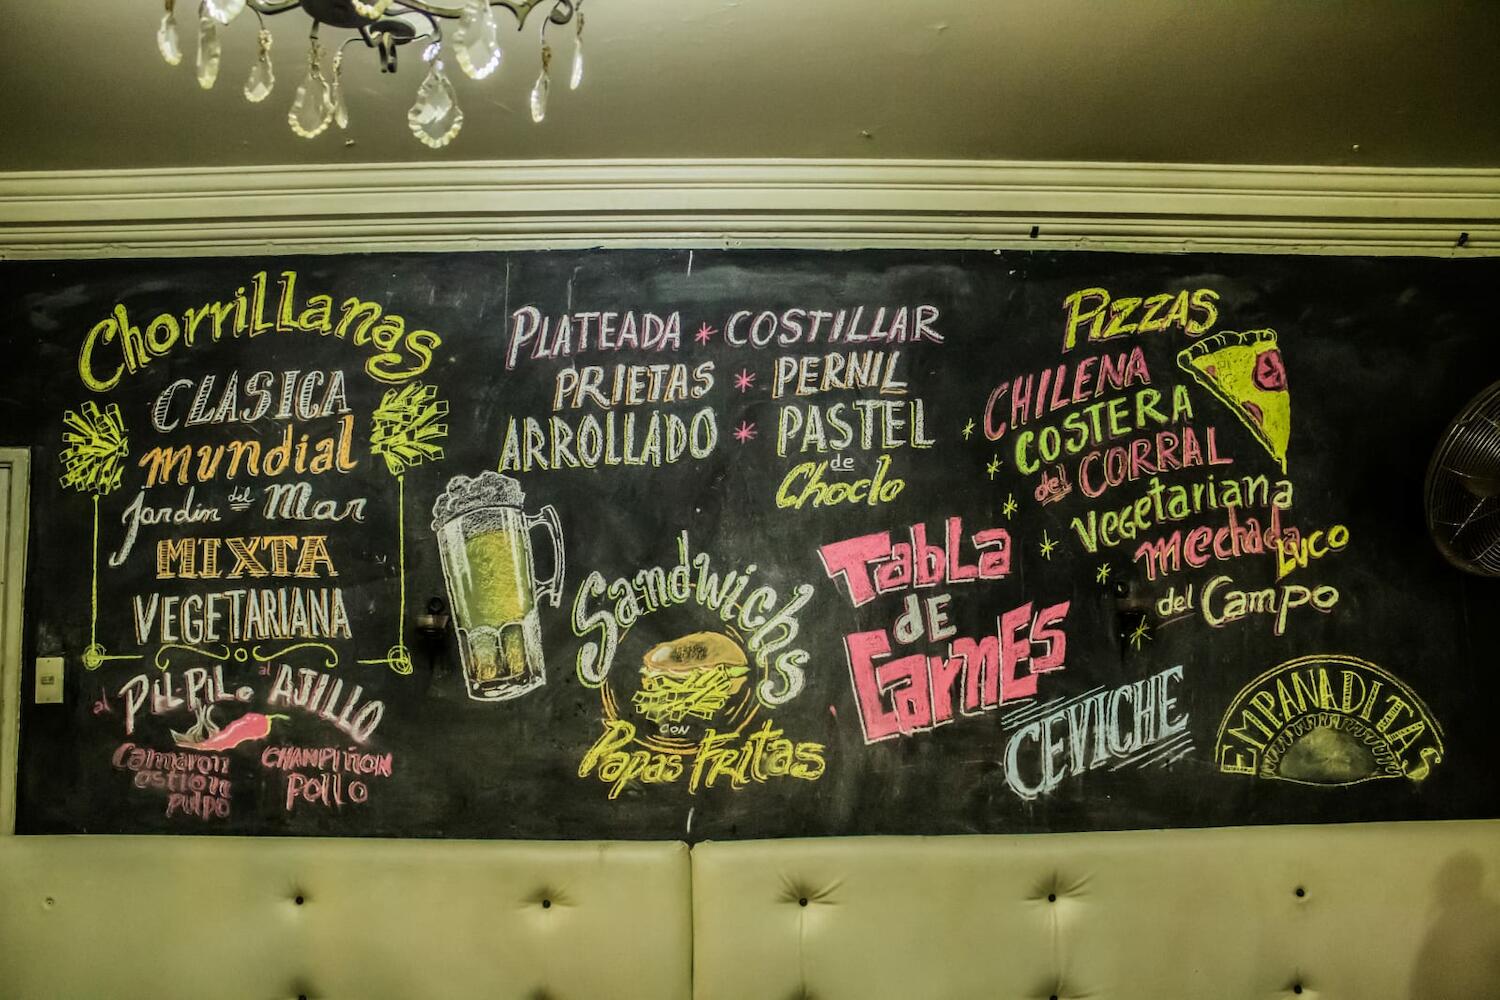 Chorrillanas
CLASICA
mundial
Jardin del Mar
MIXTA
VEGETARIANA
al PIL-PIL. al AJILLO
Camaron
ostion
pulpo
CHAMPIÑON
Pollo
PLATEADA * COSTILLAR
PRIETAS * PERNIL
ARROLLADO * PASTEL
de
Choclo
Sandwichs
CON
Papas Fritas
Tabla
DE
Carnes
PIZZAS
CHILENA
COSTERA
del CORRAL
Vegetariana
Mechada
Luco
del Campo
CEVICHE
EMPANADITAS